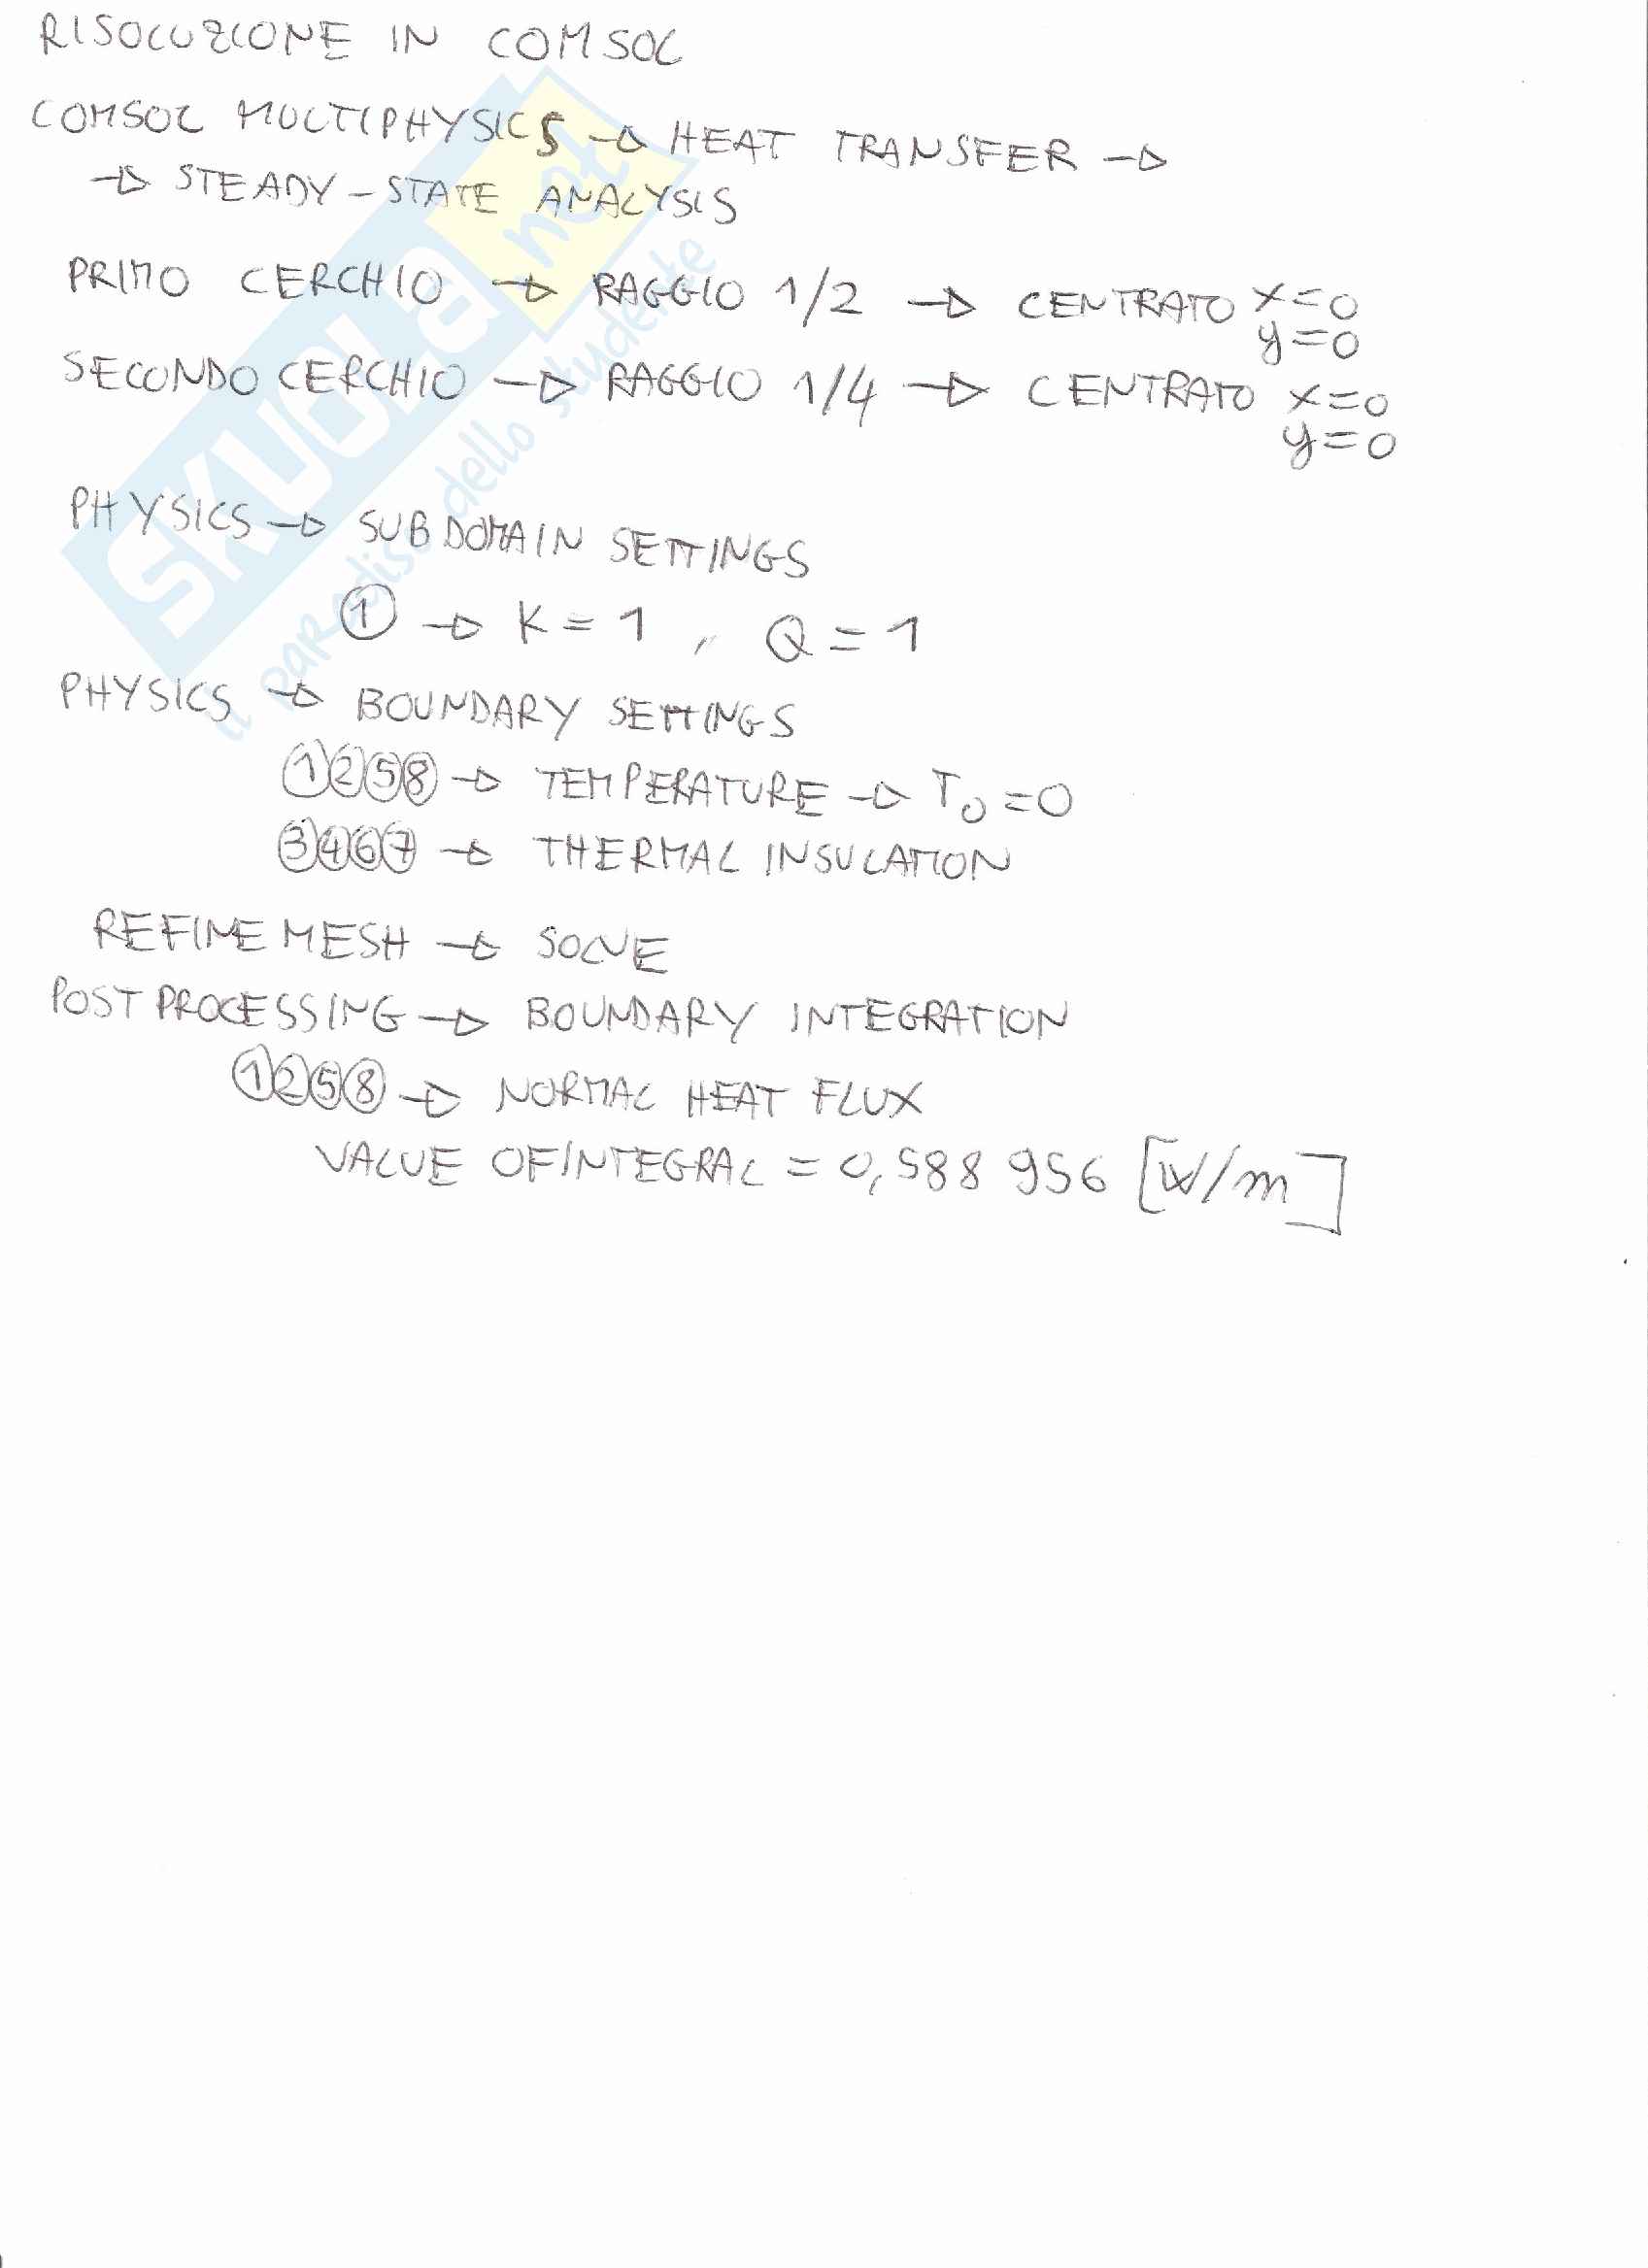 RISOLUZIONE IN COMSOL
COMSOL MULTIPHYSICS → HEAT TRANSFER →
→ STEADY-STATE ANALYSIS
PRIMO CERCHIO → RAGGIO 1/2 → CENTRATO x=0
y=0
SECONDO CERCHIO → RAGGIO 1/4 → CENTRATO x=0
y=0
PHYSICS → SUBDOMAIN SETTINGS
① → K = 1 , Q = 1
PHYSICS → BOUNDARY SETTINGS
①②⑤⑧ → TEMPERATURE → T₀ = 0
③④⑥⑦ → THERMAL INSULATION
REFINE MESH → SOLVE
POSTPROCESSING → BOUNDARY INTEGRATION
①②⑤⑧ → NORMAL HEAT FLUX
VALUE OF INTEGRAL = 0,588 956 [W/m]
SKUOLa.net
il paradiso dello studente